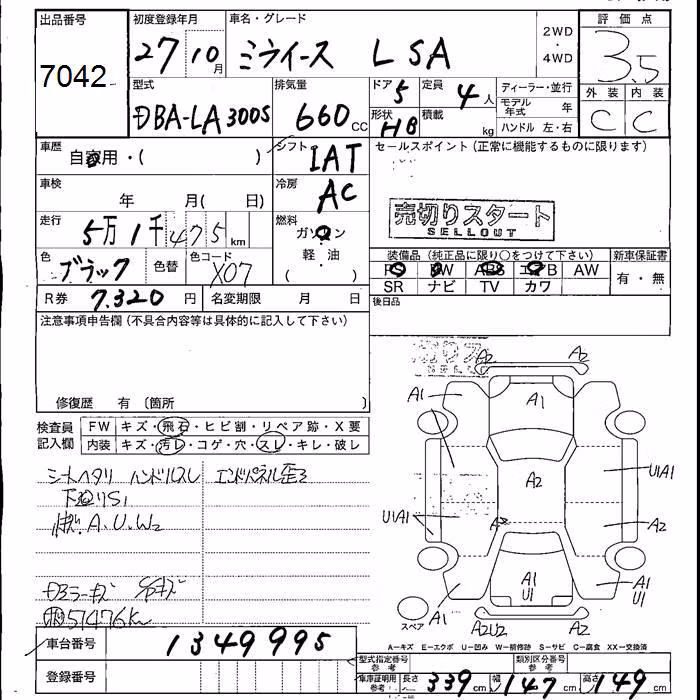 出品番号 初度登録年月 車名・グレード 2WD・4WD 評価点
7042 27 10月 ミライース L SA 3.5
型式 排気量 ドア 5 定員 4人 ディーラー・並行 外装 内装
DBA-LA300S 660cc 形状 HB 積載 kg モデル年式 年 C C
ハンドル 左・右
車歴 自家用・( ) シフト IAT セールスポイント(正常に機能するものに限ります)
車検 年 月( 日) 冷房 AC
売切りスタート
SELLOUT
走行 5万1千475km 燃料 ガソリン
軽・油
( )
色 ブラック 色替 色コード X07 装備品(純正品に限り○をつけて下さい) 新車保証書
PS PW ABS エアB AW 有・無
SR ナビ TV カワ
R券 7.320円 名変期限 月 日 後日品
注意事項申告欄(不具合内容等は具体的に記入して下さい)
修復歴 有 〔箇所 〕
検査員記入欄 FW キズ・飛石・ヒビ割・リペア跡・X要
内装 キズ・汚レ・コゲ・穴・スレ・キレ・破レ
シートヘタリ ハンドルスレ エンドパネル歪ミ
下廻りS1
A.U.W2
ドアミラーキズ
51476Km
A2 A2
A1 A1
A2 U1A1
U1A1 A2 A2
A1 A1 U1 A1 U1
スペア A2U2 A2
A-キズ E-エクボ U-凹み W-補修跡 S-サビ C-腐食 XX-交換済
車台番号 1349995
登録番号
型式指定番号 参考 類別区分番号 参考
車庫証明用 参考 長さ 339cm 幅 147cm 高さ 149cm